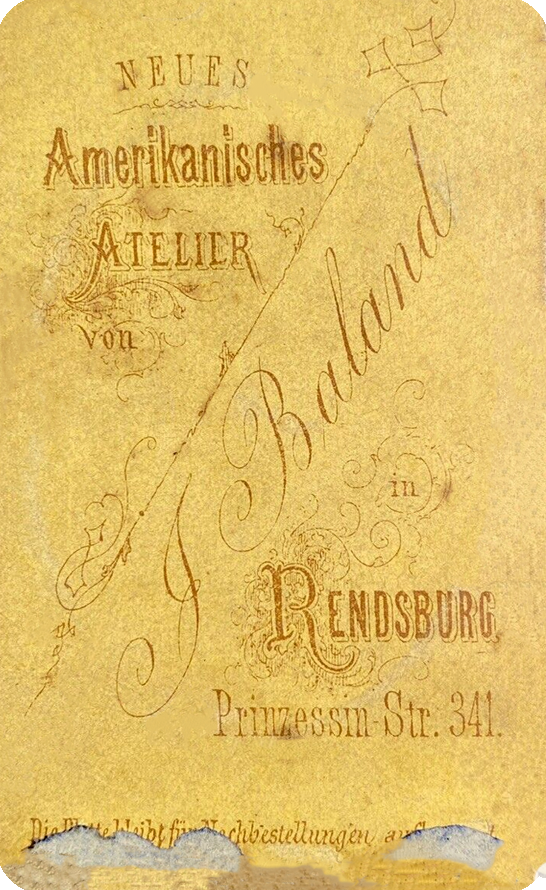 NEUES
Amerikanisches
ATELIER
von
J Baland
in
RENDSBURG
Prinzessin-Str. 341.
Die Platte bleibt für Nachbestellungen